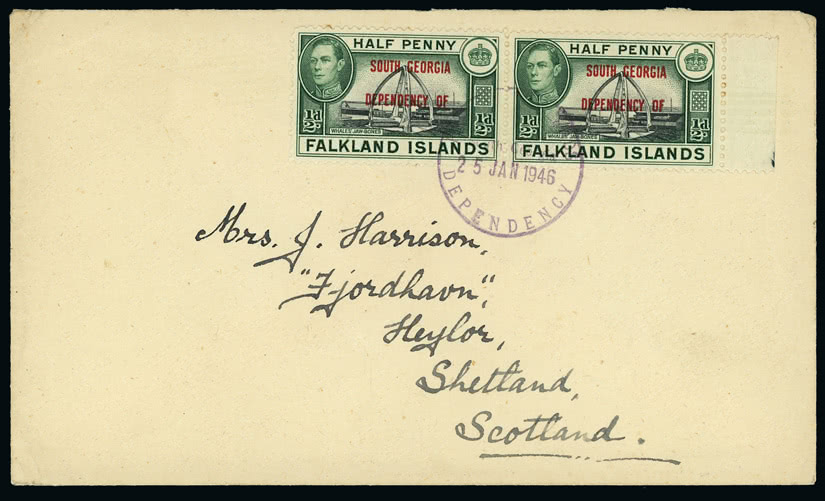 HALF PENNY
SOUTH GEORGIA
DEPENDENCY OF
½d ½d
WHALES' JAW-BONES
FALKLAND ISLANDS
HALF PENNY
SOUTH GEORGIA
DEPENDENCY OF
½d ½d
WHALES' JAW-BONES
FALKLAND ISLANDS
25 JAN 1946
DEPENDENCY
Mrs. J. Harrison,
"Fjordhavn",
Heylor,
Shetland,
Scotland.